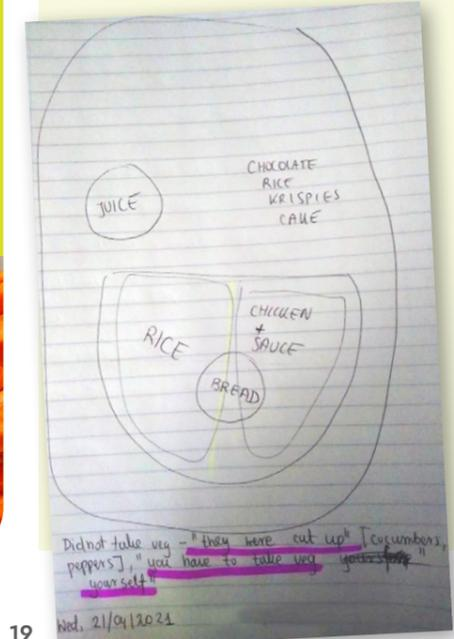 CHOCOLATE
RICE
KRISPIES
CAKE
JUICE
RICE
CHICKEN
+
SAUCE
BREAD
Did not take veg - "they were cut up" [cucumbers,
peppers], "you have to take veg yourself"
yourself"
Wed, 21/04/2021
19